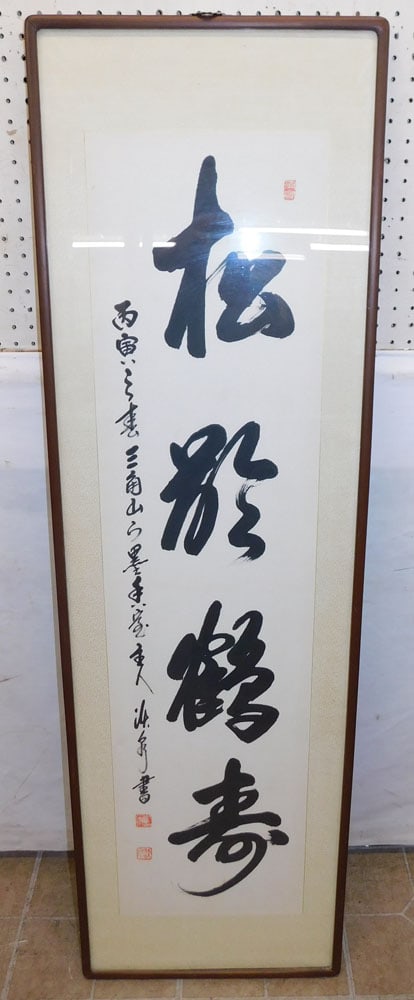 松齡鶴寿
丙寅之春三角山下墨香室主人 書